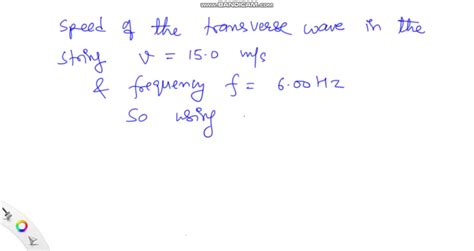 www.BANDICAM.com
Speed of the transverse wave in the
string v = 15.0 m/s
& frequency f = 6.00 Hz
So using